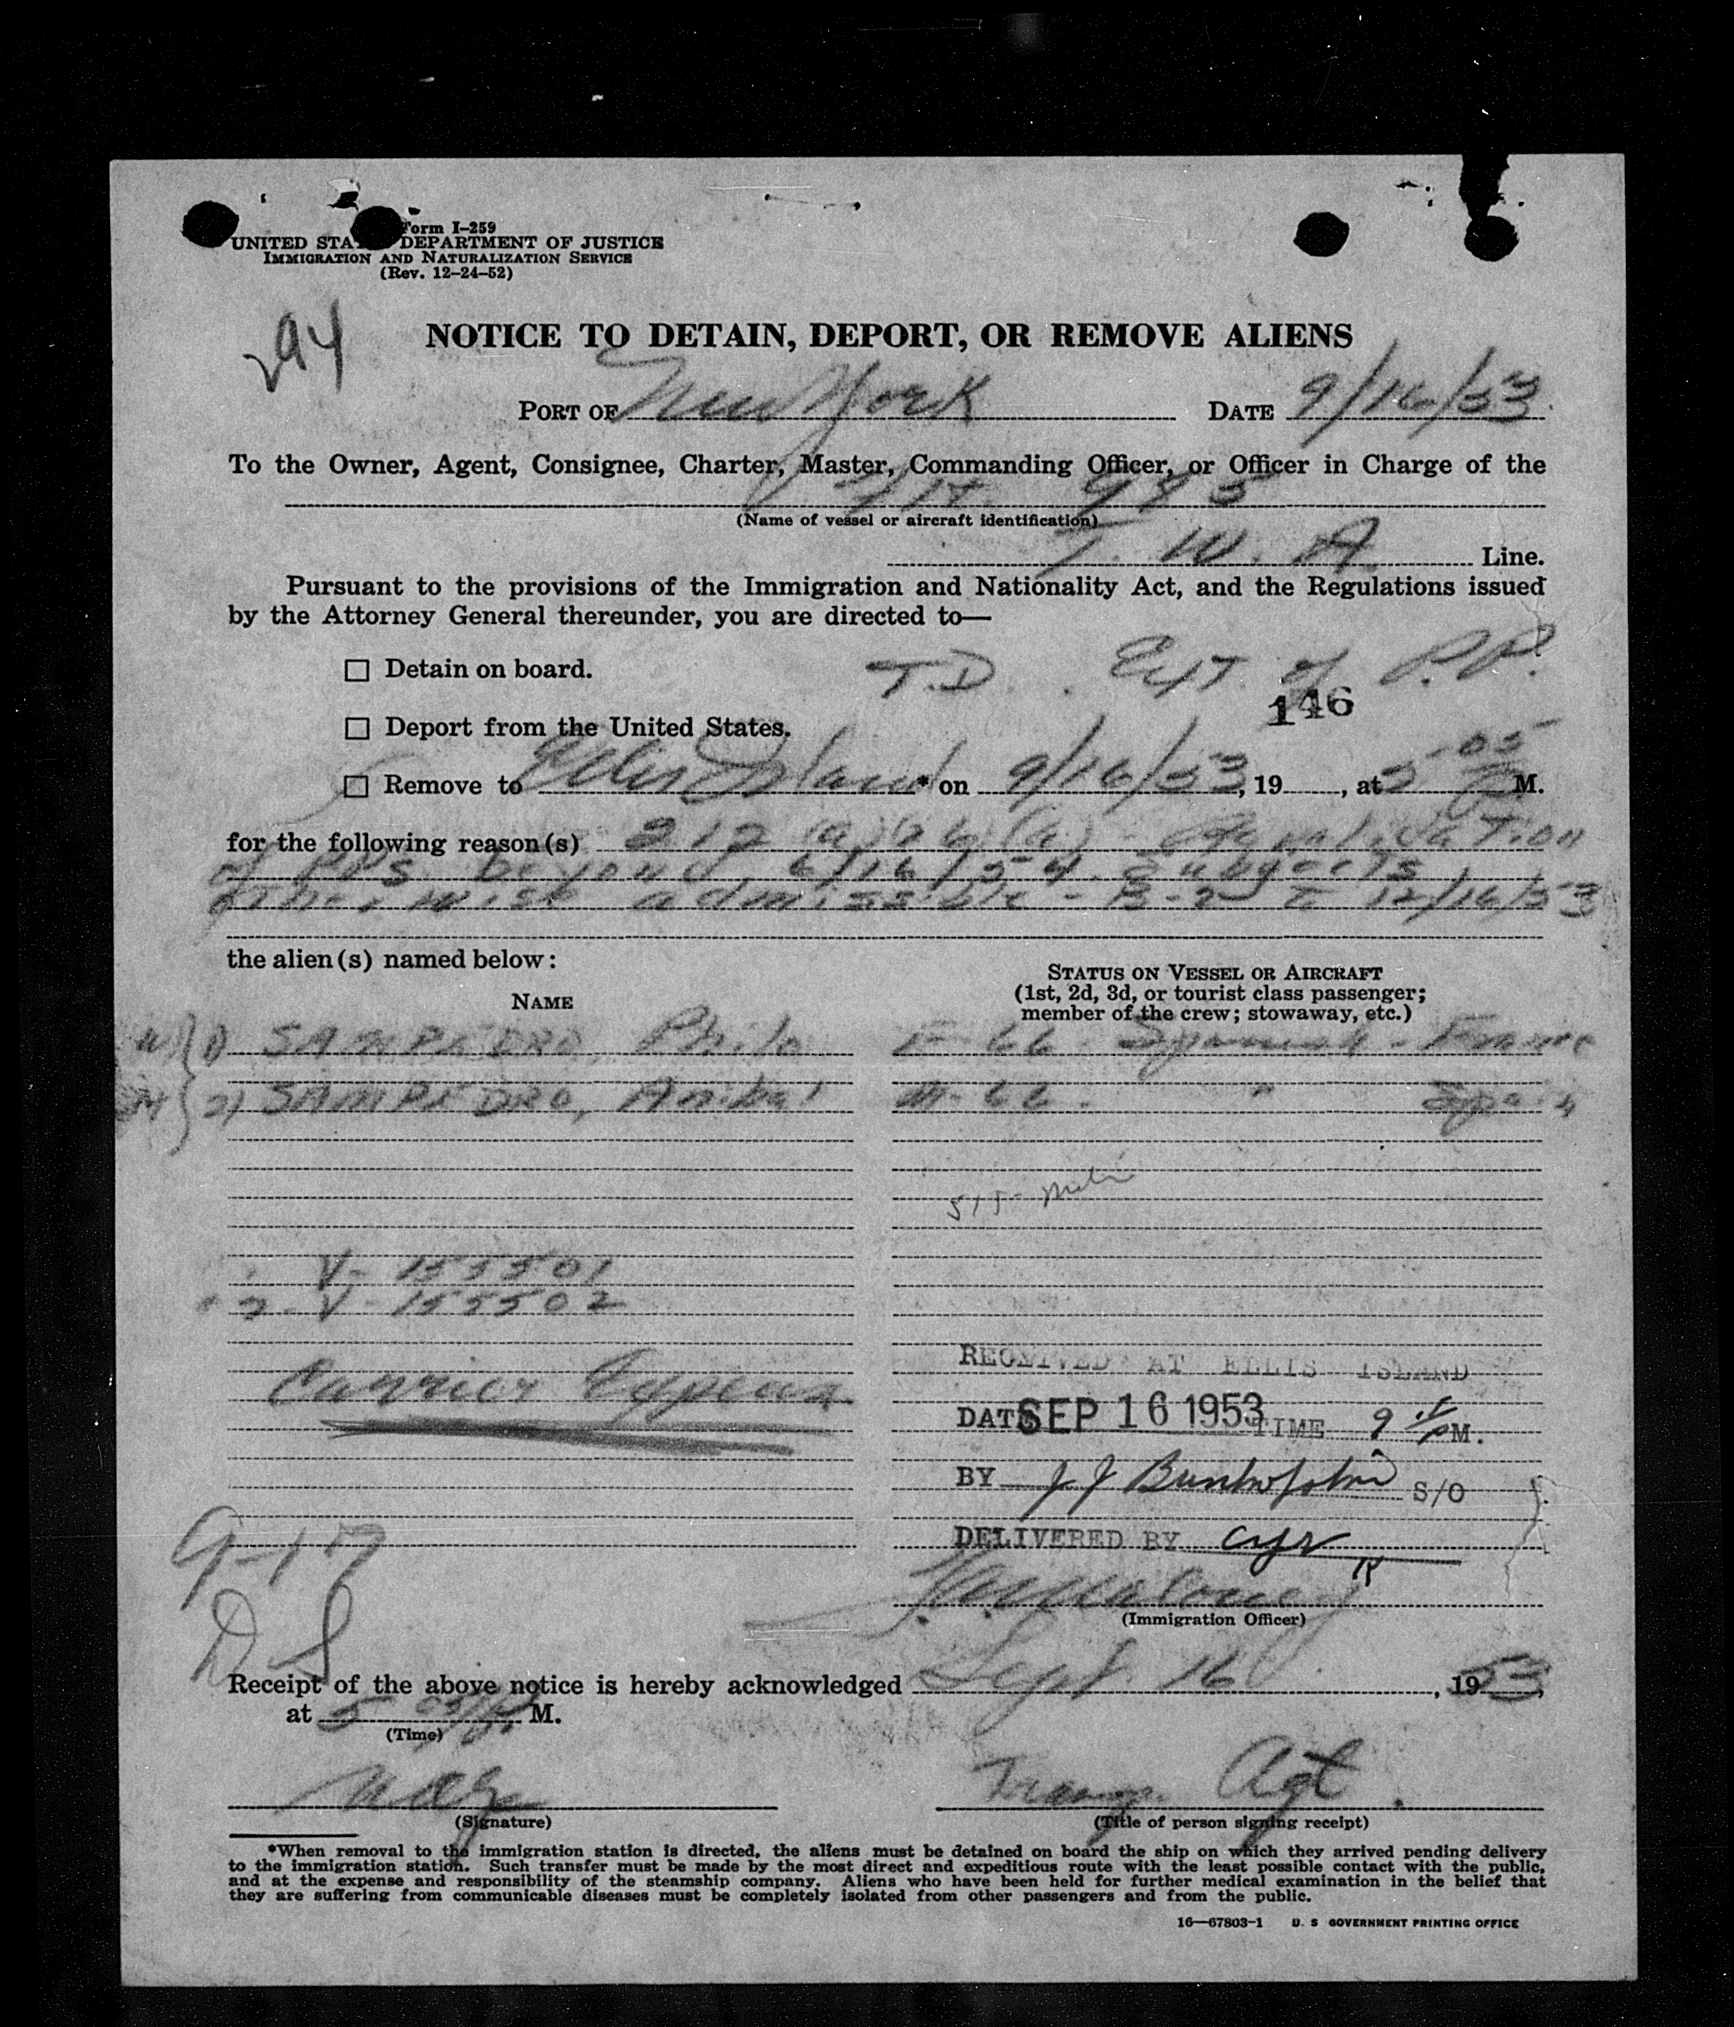 Form I-259
UNITED STA DEPARTMENT OF JUSTICE
IMMIGRATION AND NATURALIZATION SERVICE
(Rev. 12-24-52)
294
NOTICE TO DETAIN, DEPORT, OR REMOVE ALIENS
PORT OF New York DATE 9/16/53
To the Owner, Agent, Consignee, Charter, Master, Commanding Officer, or Officer in Charge of the
Flt. 975
(Name of vessel or aircraft identification)
T. W. A. Line.
Pursuant to the provisions of the Immigration and Nationality Act, and the Regulations issued
by the Attorney General thereunder, you are directed to—
☐ Detain on board. T.D. Ext. of P.P.
146
☐ Deport from the United States.
☐ Remove to Ellis Island * on 9/16/53, 19 , at 5 05 P M.
for the following reason(s) 212 (a) 26 (a) - Revalidation
of PPS beyond 6/16/54. Subjects
otherwise admissible - B-2 12/16/53
the alien(s) named below:
STATUS ON VESSEL OR AIRCRAFT
NAME (1st, 2d, 3d, or tourist class passenger;
member of the crew; stowaway, etc.)
W 1) SAMPEDRO, Philo F-66 Spanish - France
H 2) SAMPEDRO, Anibal M-66. " Spain
V- 155501
2- V- 155502
Carrier Expense
RECEIVED AT ELLIS ISLAND
DATE SEP 16 1953 TIME 9 M.
BY J J S/O
DELIVERED BY
9-17
DS
(Immigration Officer)
Receipt of the above notice is hereby acknowledged Sept. 16, 1953,
at 5 05 P. M.
(Time)
Transp. Agt.
(Signature) (Title of person signing receipt)
*When removal to the immigration station is directed, the aliens must be detained on board the ship on which they arrived pending delivery
to the immigration station. Such transfer must be made by the most direct and expeditious route with the least possible contact with the public,
and at the expense and responsibility of the steamship company. Aliens who have been held for further medical examination in the belief that
they are suffering from communicable diseases must be completely isolated from other passengers and from the public.
16—67803-1 U. S GOVERNMENT PRINTING OFFICE